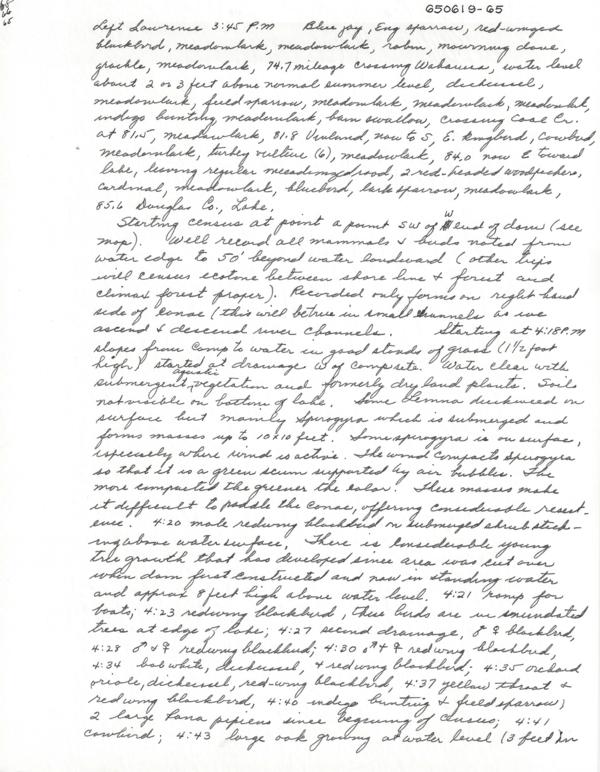 650619-65
65
66
65
Left Lawrence 3:45 P.M Blue jay, Eng sparrow, red-winged
blackbird, meadowlark, meadowlark, robin, mourning dove,
grackle, meadowlark, 74.7 mileage crossing Wakarusa, water level
about 2 or 3 feet above normal summer level, dickcissel,
meadowlark, field sparrow, meadowlark, meadowlark, meadowlark,
indigo bunting, meadowlark, barn swallow, crossing Coal Cr.
at 81.5, meadowlark, 81.8 Vinland, now to S, E. Kingbird, Cowbird,
meadowlark, turkey vulture (6), meadowlark, 84.0 now E toward
lake, leaving regular macadamized road, 2 red-headed woodpeckers,
cardinal, meadowlark, bluebird, lark sparrow, meadowlark,
85.6 Douglas Co., Lake.
Starting census at point a point SW of W end of dam (see
map). Will record all mammals & birds noted from
water edge to 50' beyond water landward (other trips
will census ecotone between shore line & forest and
climax forest proper). Recorded only forms on right hand
side of canoe (this will be true in small channels as we
ascend & descend river channels. Starting at 4:18 P.M
slopes from camp to water in good stands of grass (1½ foot
high) started at drainage W of campsite. Water clear with
submergent, aquatic vegetation and formerly dry land plants. Soil
not visible on bottom of lake. Some Lemna duckweed on
surface but mainly Spirogyra which is submerged and
forms masses up to 10x10 feet. Some spirogyra is on surface,
especially where wind is active. The wind compacts Spirogyra
so that it is a green scum supported by air bubbles. The
more compacted the greener the color. These masses make
it difficult to paddle the canoe, offering considerable resist-
ence. 4:20 male redwing blackbird on submerged shrub stick-
ing above water surface. There is considerable young
tree growth that has developed since area was cut over
when dam first constructed and now in standing water
and approx 8 feet high above water level. 4:21 ramp for
boats; 4:23 redwing blackbird, these birds are in inundated
trees at edge of lake; 4:27 second drainage, ♂ ♀ blackbird,
4:28 ♂ & ♀ redwing blackbird; 4:30 ♂ & ♀ redwing blackbird,
4:34 bobwhite, dickcissel, & redwing blackbird; 4:35 orchard
oriole, dickcissel, red-wing blackbird, 4:37 yellow throat &
redwing blackbird, 4:40 indigo bunting & field sparrow;
2 large Rana pipiens since beginning of census; 4:41
cowbird; 4:43 large oak growing at water level (3 feet in